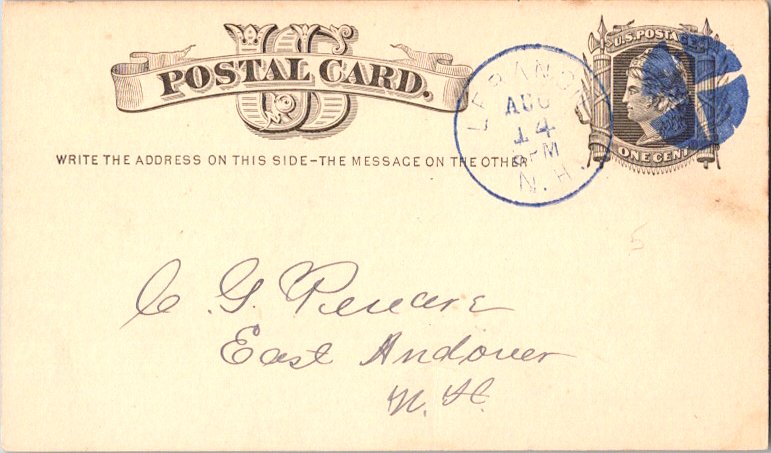 U.S. POSTAGE
US
POSTAL CARD.
ONE CENT
LEBANON
AUG
14
PM
N.H.
WRITE THE ADDRESS ON THIS SIDE–THE MESSAGE ON THE OTHER
C. G.
East Andover
N. H.
5